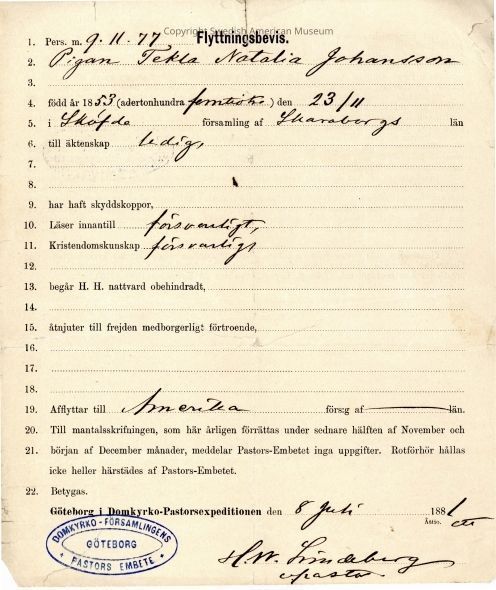 Copyright Swedish American Museum
Flyttningsbevis.
1. Pers. m. 9.11.77
2. Pigan Tekla Natalia Johansson
3.
4. född år 1853 (adertonhundra femtiotre) den 23/11
5. i Sköfde församling af Skaraborgs län
6. till äktenskap ledig,
7.
8.
9. har haft skyddskoppor,
10. Läser innantill försvarligt,
11. Kristendomskunskap försvarlig,
12.
13. begår H. H. nattvard obehindradt,
14.
15. åtnjuter till frejden medborgerligt förtroende,
16.
17.
18.
19. Afflyttar till Amerika förs:g af län.
20. Till mantalsskrifningen, som här årligen förrättas under sednare hälften af November och
21. början af December månader, meddelar Pastors-Embetet inga uppgifter. Rotförhör hållas
icke heller härstädes af Pastors-Embetet.
22. Betygas.
Göteborg i Domkyrko-Pastorsexpeditionen den 8 Juli 1881
DOMKYRKO-FÖRSAMLINGENS
GÖTEBORG
PASTORS EMBETE
H.W. Lindeberg